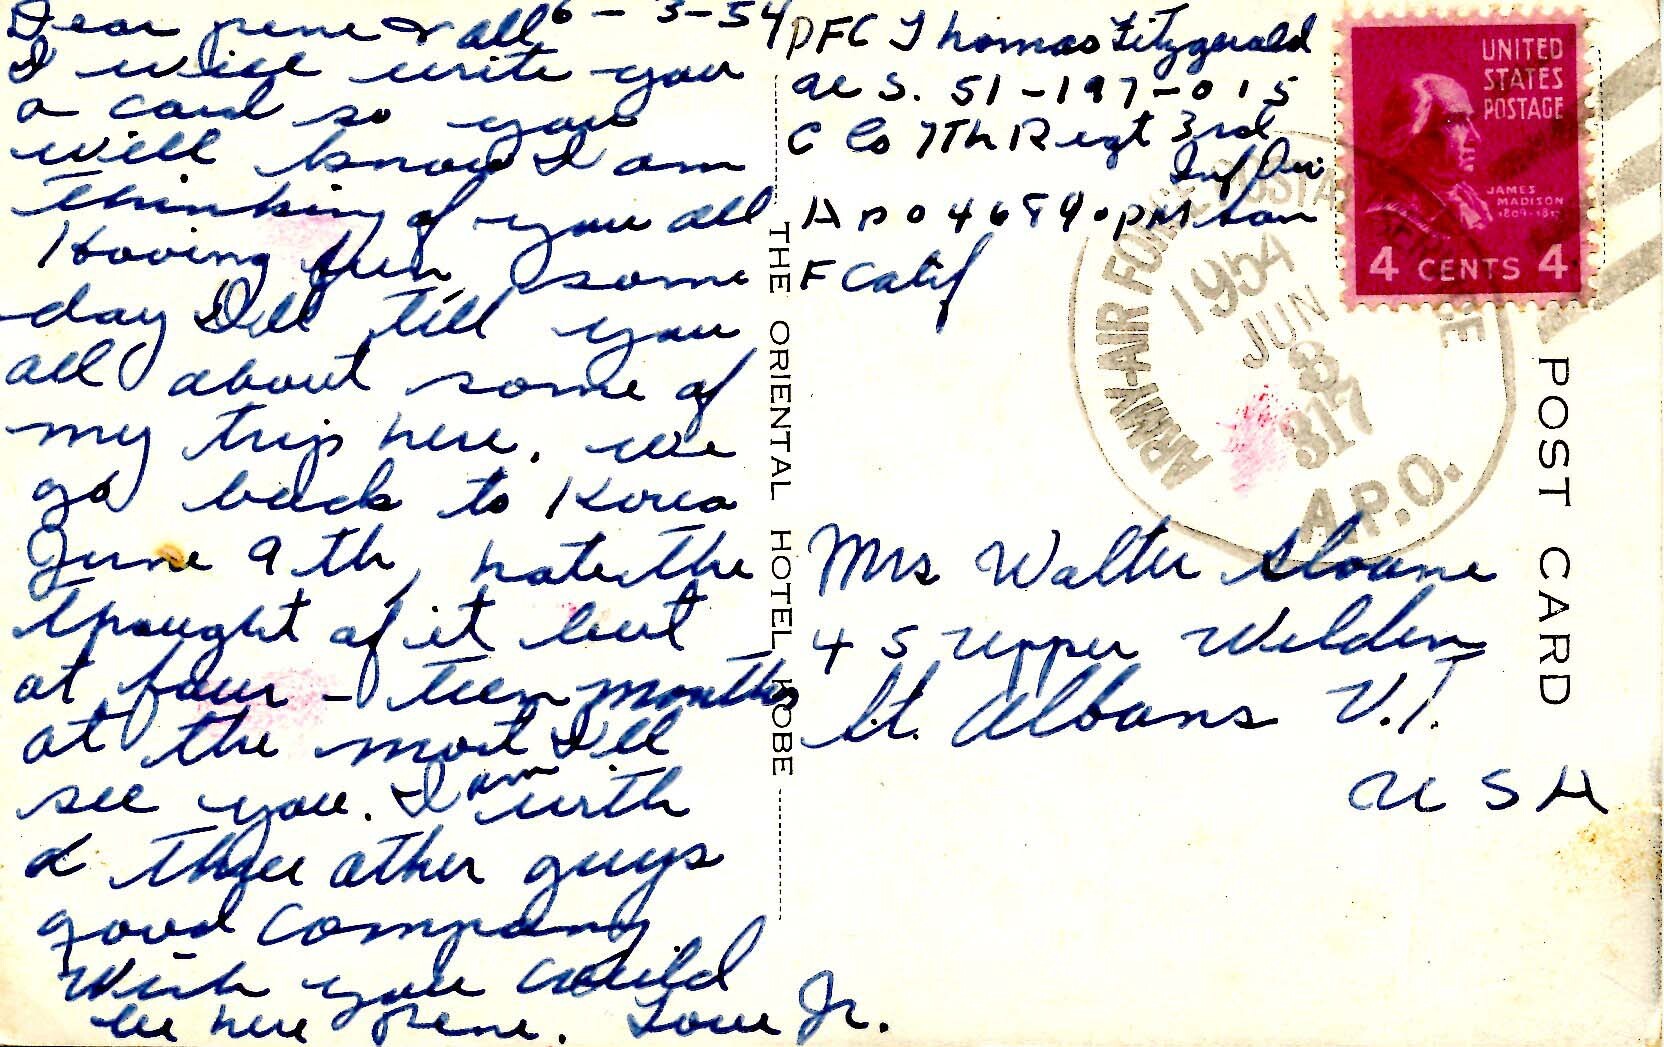 6-3-54
Dear rene & all
I will write you
a card so you
will know I am
thinking of you all
Having fun, some
day I'll till you
all about some of
my trip here. we
go back to Korea
June 9th, hate the
thought of it but
at four-teen months
at the most I'll
see you. I am with
& three other guys
good company.
Wish you could
be here rene. Love Jr.
PFC Thomas Fitzgerald
S. 51-197-015
C Co 7Th Regt 3rd
Inf Div
A P O 468 PM San
F Calif
Mrs Walter Sloane
45 Upper Welden
St. Albans V.T.
USA
THE ORIENTAL HOTEL KOBE
POST CARD
UNITED
STATES
POSTAGE
JAMES
MADISON
4 CENTS 4
ARMY-AIR FORCE POSTAL SERVICE
1954
JUN
8
317
A.P.O.